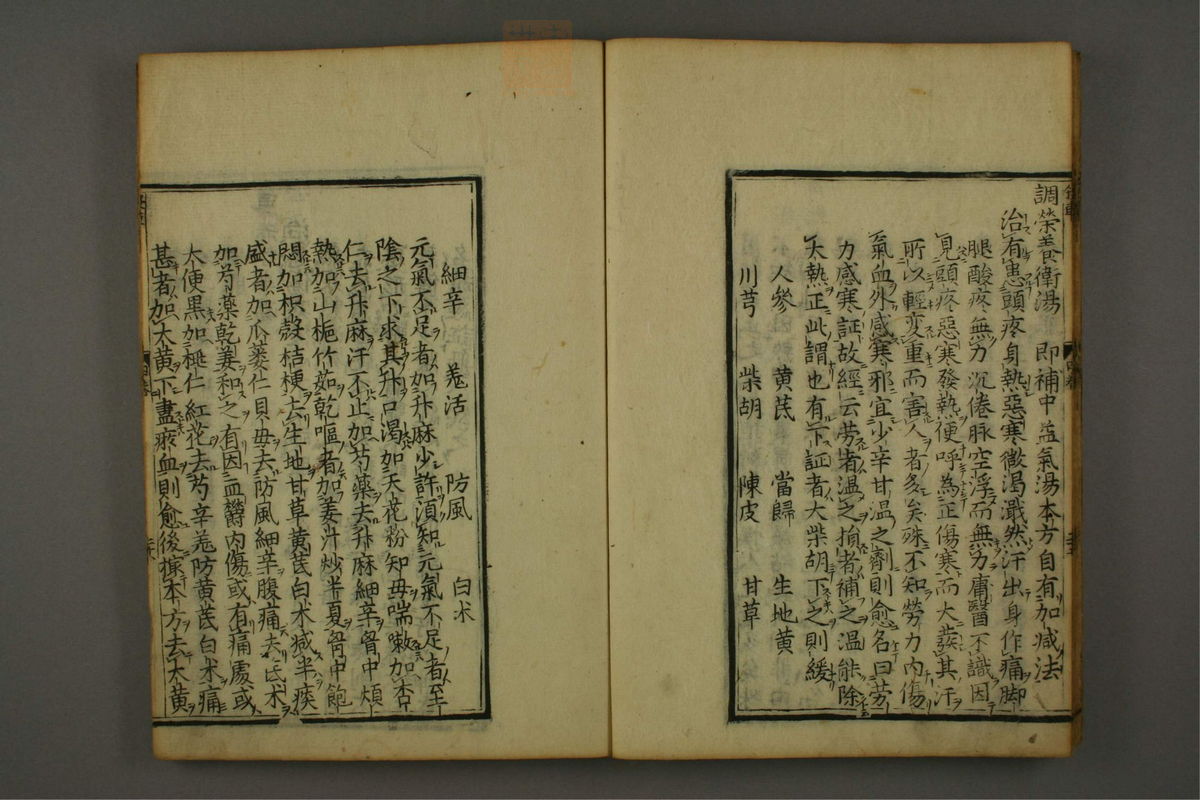 調榮養衛湯 即補中益氣湯本方自有加減法
治有患頭疼身熱惡寒微渇濈然汗出身作痛脚
腿酸疼無力沉倦脉空浮而無力庸醫不識因
見頭疼惡寒發熱便呼為正傷寒而大發其汗
所以輕変重而害人者多矣殊不知勞力内傷
氣血外感寒邪宜少辛甘温之劑則愈名曰劳
力感寒証故經云劳者温之損者補之温能除
大熱正此謂也有下証者大柴胡下之則緩
人參 黄芪 當歸 生地黄
川芎 柴胡 陳皮 甘草
細辛 羗活 防風 白朮
元氣不足者加升麻少許湏知元氣不足者至
陰之下求其升口渇加天花粉知母喘嗽加杏
仁去升麻汗不止加芍藥去升麻細辛胷中煩
熱加山梔竹茹乾嘔者加姜汁炒半夏胷中飽
悶加枳殻桔梗去生地甘草黄芪白朮减半痰
盛者加瓜蔞仁貝母去防風細辛腹痛去芪朮
加芍藥乾姜和之有因血欝内傷或有痛處或
大便黒加桃仁紅花去芍辛羗防黄芪白朮痛
甚者加大黄下盡瘀血則愈後據本方去大黄